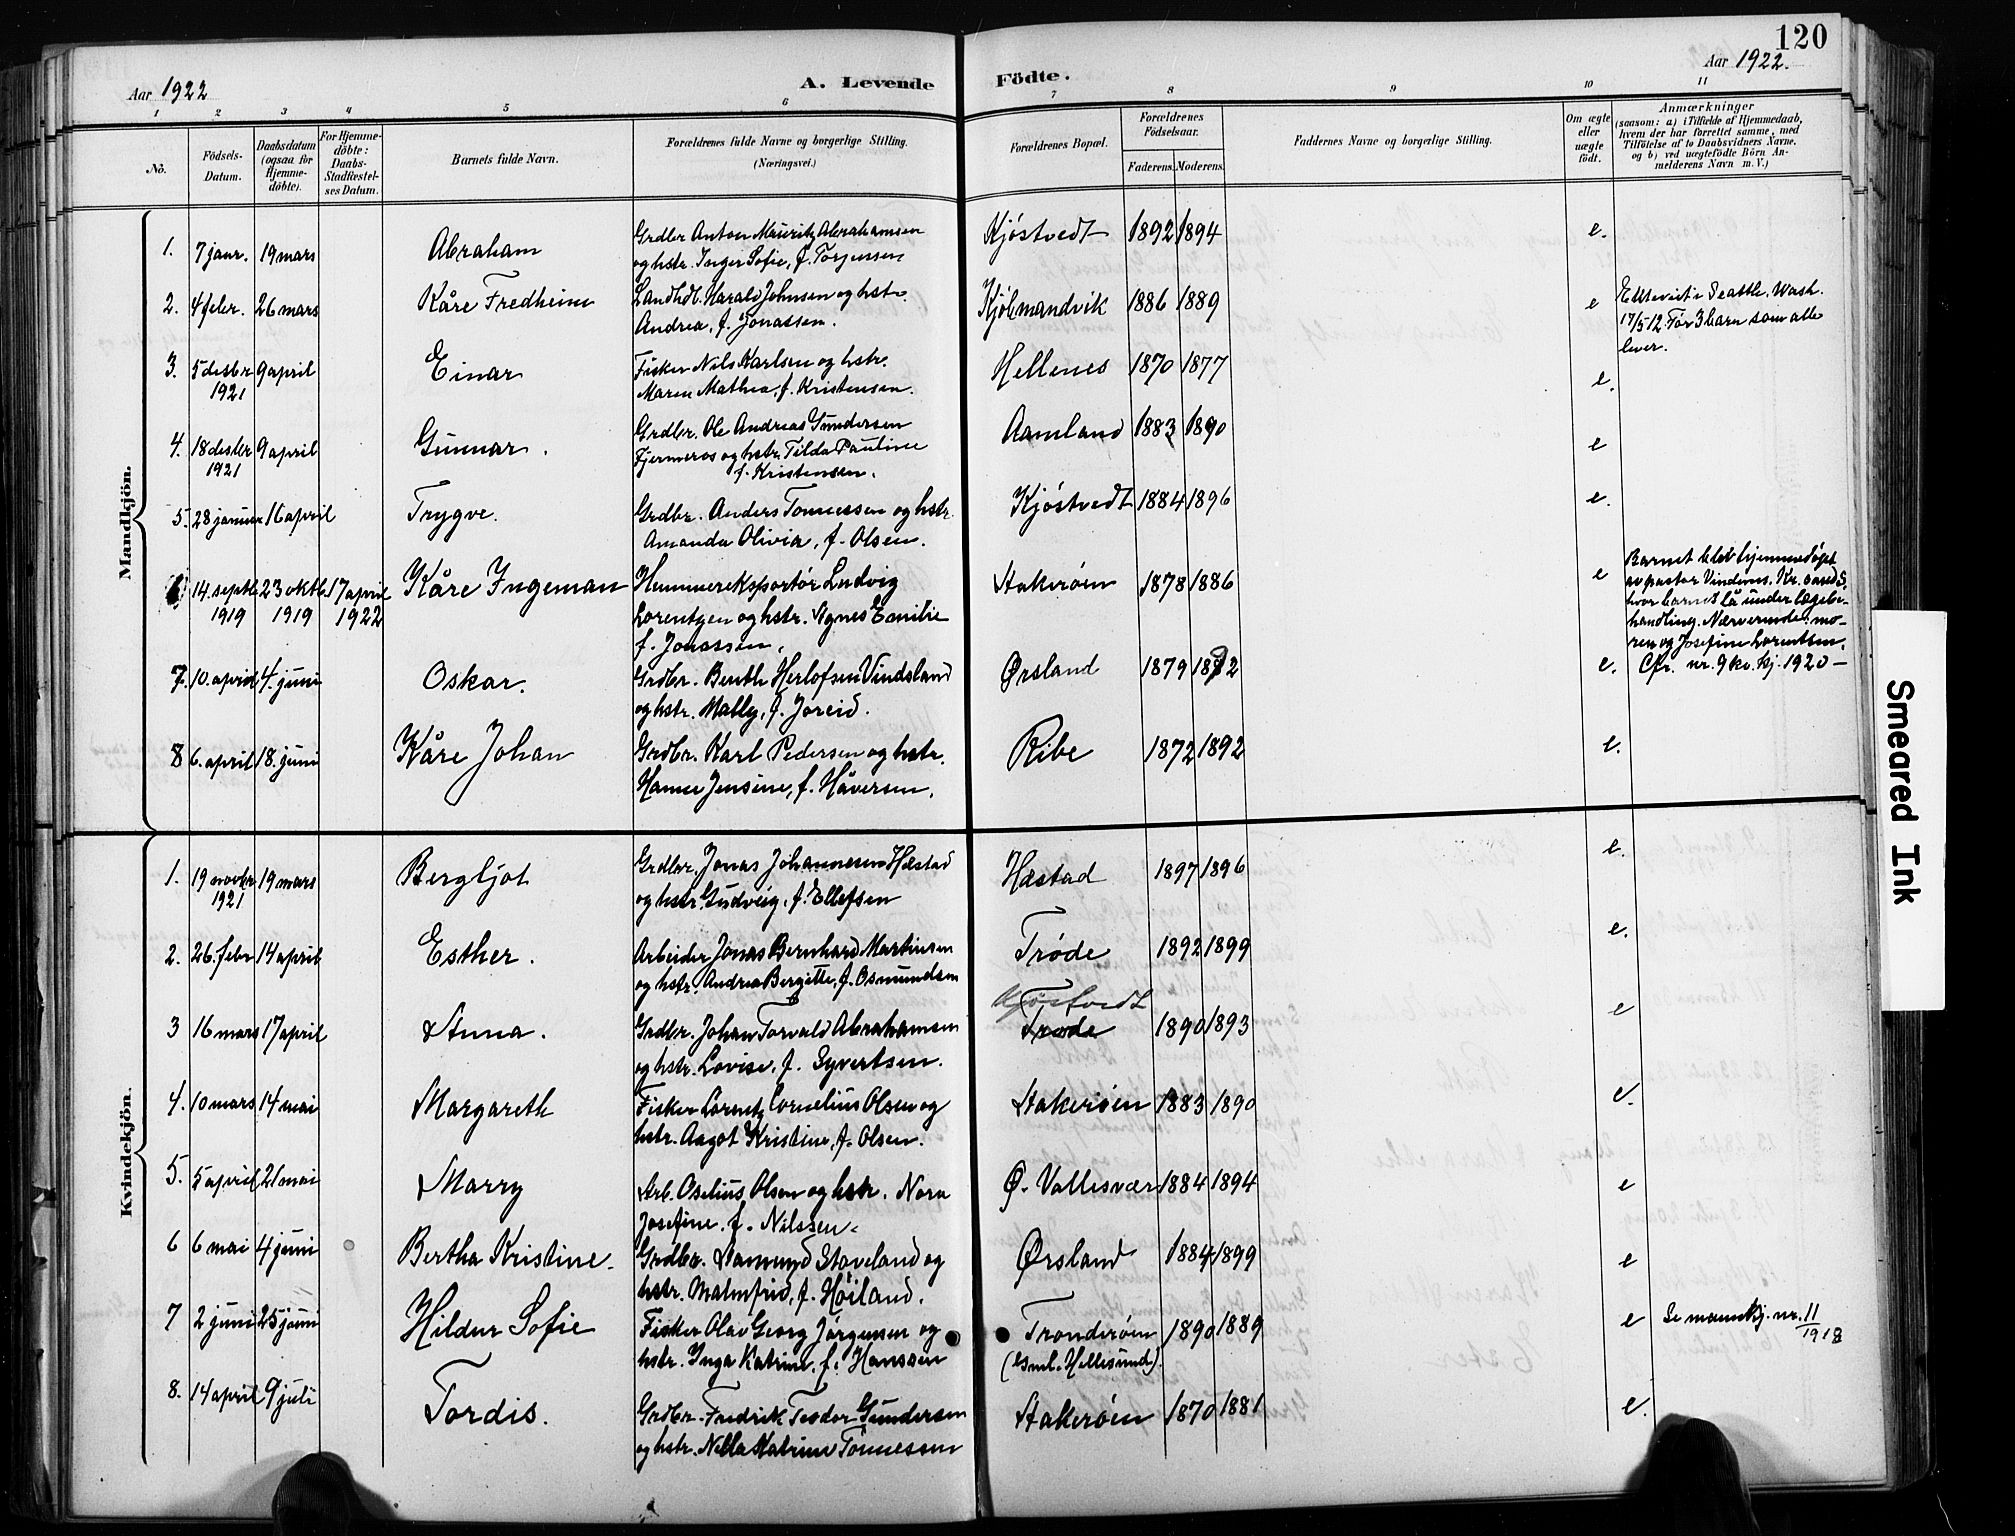 120
Aar 1922
A. Levende
Födte.
Aar 1922.
1 2 3 4 5 6 7 8 9 10 11
No.
Födsels-
Datum.
Daabsdatum
(ogsaa for
Hjemme-
döbte).
For Hjemme-
döbte:
Daabs-
Stadfæstel-
ses Datum.
Barnets fulde Navn.
Forældrenes fulde Navne og borgerlige Stilling.
(Næringsvei.)
Forældrenes Bopæl.
Forældrenes
Födselsaar.
Faderens. Moderens.
Faddernes Navne og borgerlige Stilling.
Om ægte
eller
uægte
födt.
Anmærkninger
(saasom: a) i Tilfælde af Hjemmedaab,
hvem der har forrettet samme, med
Tilföielse af to Daabsvidners Navne,
og b) ved uægtefödte Börn An-
melderens Navn m. V.)
Mandkjön.
1. 7 januar. 19 mars Abraham Grdbr Anton Mauritz Abrahamsen Kjöstvedt 1892 1894 e.
og hstr. Inger Sofie, f. Torjussen
2. 4 febr. 26 mars Kåre Fredheim Landhdl. Harald Johnsen og hstr. Kjöbmandvik 1886 1889 e Ekteviet i Seattle, Wash.
Andrea, f. Jonassen. 17/5 12. Før 3 barn som alle
lever.
3. 5 desbr 9 april Einar Fisker Nils Karlsen og hstr. Hellenes 1870 1877 e.
1921 Maren Mathea, f. Kristensen.
4. 18 desbr 9 april Gunnar. Grdbr. Ole Andreas Gundersen Aamland 1883 1890 e
1921 Fjermeros og hstr. Tilda Pauline
f. Kristensen.
5. 28 januar 16 april Trygve. Grdbr. Anders Tønnessen og hstr. Kjöstvedt 1884 1896 e.
Amanda Olivia, f. Olsen.
14. septb 23 oktb. 17 april Kåre Ingeman Hummereksportör Ludvig Stakerøen 1878 1886 e Barnet blev hjemmedöpt
1919 1919 1922 Lorentzen og hstr. Agnes Emilie av pastor
f. Jonassen. hvor barnet lå under lægebe-
handling. Nærværende: mo-
ren og Josefine Lorentsen.
7. 10. april 4. juni Oskar. Grdbr. Benth Herlofsen Vindsland Ørsland 1879 1892 e. Cfr. nr. 9 kv. kj. 1920 –
og hstr. Mally, f. Joreid.
8 6. april 18. juni Kåre Johan Grdbr. Karl Pedersen og hstr. Ribe 1872 1892 e.
Hanne Jensine, f. Håversen.
Kvindekjön.
1. 19 novbr. 19 mars Bergljot Grdbr. Jonas Johannesen Hæstad Hæstad 1897 1896 e.
1921 og hstr. Gudveig, f. Ellefsen
2. 26. febr 14 april Esther. Arbeider Jonas Bernhard Martinsen Trøde 1892 1899 e.
og hstr. Andrea Bergitte, f. Osmundsen
Kjöstvedt
3 16 mars 17 april Anna. Grdbr. Johan Torvald Abrahamsen Trøde 1890 1893 e
og hstr. Lovise, f. Syvertsen.
4. 10 mars 14 mai Margareth Fisker Lorentz Cornelius Olsen og Stakerøen 1883 1890 e.
hstr. Aagot Kristine, f. Olsen.
5. 5 april 21 mai Marry Arb. Oselius Olsen og hstr. Nora Ø. Vallesvær 1884 1894 e
Josefine. f. Nilssen.
6 6 mai 4 juni Bertha Kristine. Grdbr. Aamund Staveland og Ørsland 1884 1899 e
hstr. Malmfrid, f. Høiland.
7 2 juni 25 juni Hildur Sofie Fisker Olav Georg Jørgensen og Tronderøen 1890 1889 e Se mannkj. nr. 11
hstr. Inga Katrine, f. Hanssen (Gml. Hellesund). 1918
8. 14 april 9 juli Tordis. Grdbr. Fredrik Teodor Gundersen Stakerøen 1870 1881 e.
og hstr. Nella Katrine Tönnessen
Smeared Ink